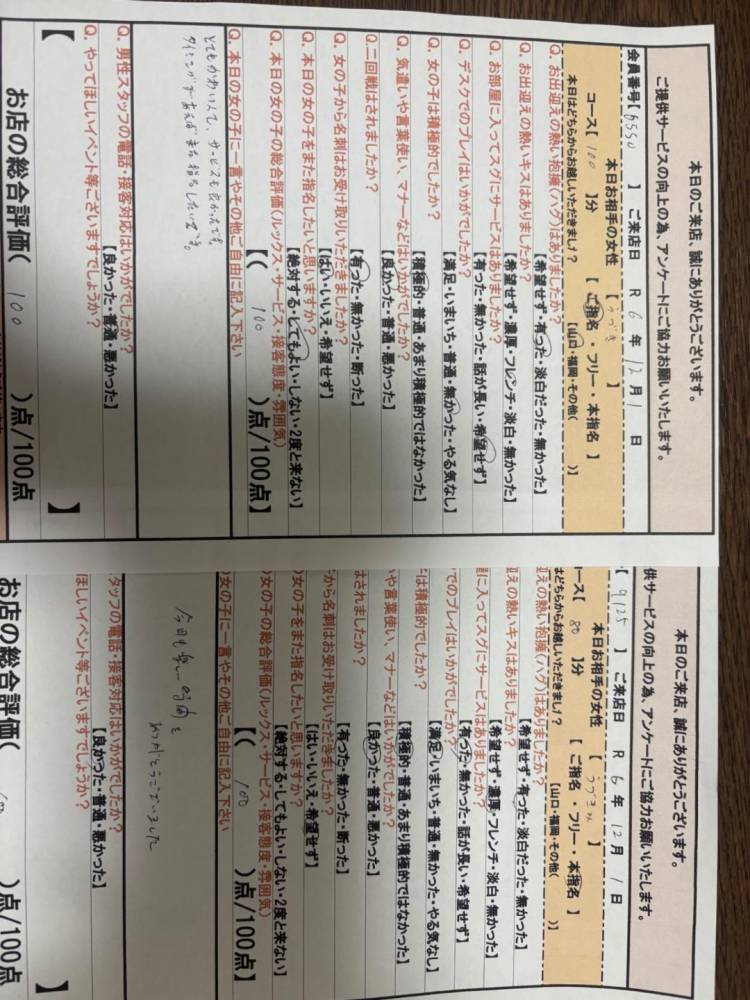 本日のご来店、誠にありがとうございます。
ご提供サービスの向上の為、アンケートにご協力お願いいたします。
会員番号【6550 】 ご来店日 R 6 年 12 月 1 日
本日お相手の女性 【うづき 】
コース【 100 】分 【 ご指名 ・ フリー ・ 本指名 】
本日はどちらからお越しいただきまし? 【山口・福岡・その他( )】
Q. お出迎えの熱い抱擁(ハグ)はありましたか?
【希望せず・有った・淡白だった・無かった】
Q. お出迎えの熱いキスはありましたか?
【希望せず・濃厚・フレンチ・淡白・無かった】
Q. お部屋に入ってスグにサービスはありましたか?
【有った・無かった・話が長い・希望せず】
Q. デスクでのプレイはいかがでしたか?
【満足・いまいち・普通・無かった・やる気なし】
Q. 女の子は積極的でしたか?
【積極的・普通・あまり積極的ではなかった】
Q. 気遣いや言葉使い、マナーなどはいかがでしたか?
【良かった・普通・悪かった】
Q. 二回戦はされましたか?
【有った・無かった・断った】
Q. 女の子から名刺はお受け取りいただきましたか?
【はい・いいえ・希望せず】
Q. 本日の女の子をまた指名したいと思いますか?
【絶対する・してもよい・しない・2度と来ない】
Q. 本日の女の子の総合評価(ルックス・サービス・接客態度・雰囲気)
【( 100 )点/100点】
Q. 本日の女の子に一言やその他ご自由に記入下さい
とてもかわいくて、サービスも良かったです。
タイミングがあえばまた指名したいです。
Q. 男性スタッフの電話・接客対応はいかがでしたか?
【良かった・普通・悪かった】
Q. やってほしいイベント等ございますでしょうか?
【 】
お店の総合評価( 100 )点/100点
本日のご来店、誠にありがとうございます。
供サービスの向上の為、アンケートにご協力お願いいたします。
【 9125 】 ご来店日 R 6 年 12 月 1 日
本日お相手の女性 【 うづきさん 】
ース【 80 】分 【 ご指名 ・ フリー ・ 本指名 】
はどちらからお越しいただきまし? 【山口・福岡・その他( )】
迎えの熱い抱擁(ハグ)はありましたか?
【希望せず・有った・淡白だった・無かった】
迎えの熱いキスはありましたか?
【希望せず・濃厚・フレンチ・淡白・無かった】
屋に入ってスグにサービスはありましたか?
【有った・無かった・話が長い・希望せず】
でのプレイはいかがでしたか?
【満足・いまいち・普通・無かった・やる気なし】
は積極的でしたか?
【積極的・普通・あまり積極的ではなかった】
いや言葉使い、マナーなどはいかがでしたか?
【良かった・普通・悪かった】
はされましたか?
【有った・無かった・断った】
から名刺はお受け取りいただきましたか?
【はい・いいえ・希望せず】
の女の子をまた指名したいと思いますか?
【絶対する・してもよい・しない・2度と来ない】
の女の子の総合評価(ルックス・サービス・接客態度・雰囲気)
【( 100 )点/100点】
の女の子に一言やその他ご自由に記入下さい
今日も楽しい時間を
ありがとうございました
タッフの電話・接客対応はいかがでしたか?
【良かった・普通・悪かった】
ほしいイベント等ございますでしょうか?
】
お店の総合評価( 100 )点/100点